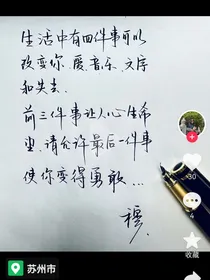 生活中有四件事可以
改变你.爱.音乐.文字
和失去.
前三件事让人心生希
望.请允许最后一件事
使你变得勇敢...
30
收藏
苏州市